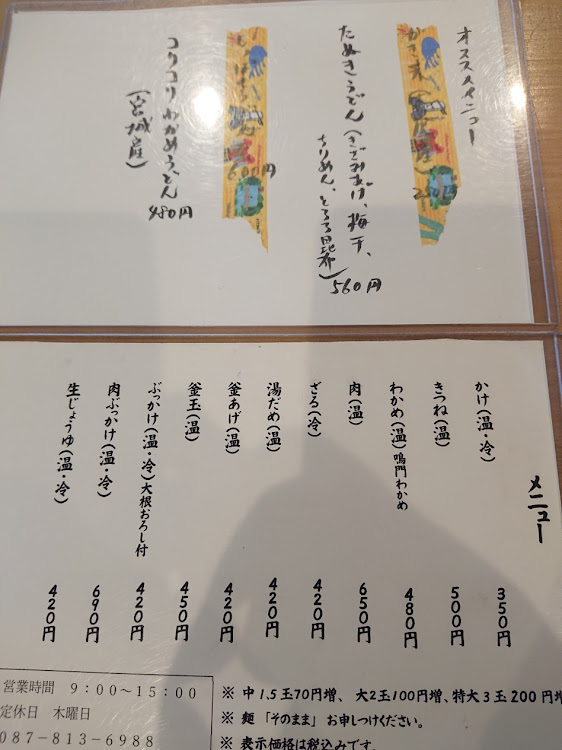 オススメメニュー
たぬきうどん(きざみあげ、梅干、
ちりめん、とろろ昆布)
560円
600円
コリコリわかめうどん
(宮城産)
480円
メニュー
かけ(温・冷) 350円
きつね(温) 500円
わかめ(温)鳴門わかめ 480円
肉(温) 650円
ざる(冷) 420円
湯だめ(温) 420円
釜あげ(温) 420円
釜玉(温) 450円
ぶっかけ(温・冷)大根おろし付 420円
肉ぶっかけ(温・冷) 690円
生じょうゆ(温・冷) 420円
営業時間 9:00〜15:00
定休日 木曜日
087-813-6988
※ 中1.5玉70円増、大2玉100円増、特大3玉200円増
※ 麺「そのまま」お申しつけください。
※ 表示価格は税込みです。